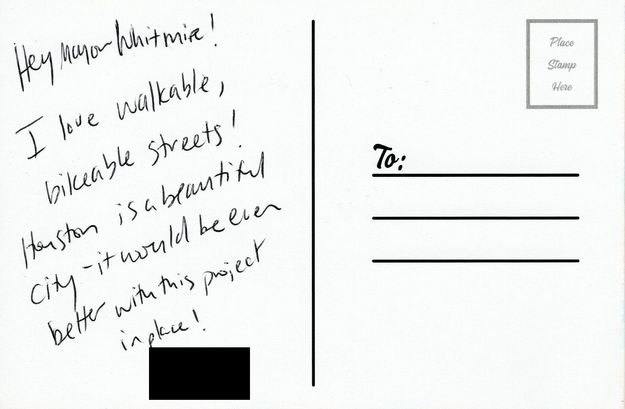 Hey Mayor Whitmire!
I love walkable,
bikeable streets!
Houston is a beautiful
city - it would be even
better with this project
in place!
Place
Stamp
Here
To: